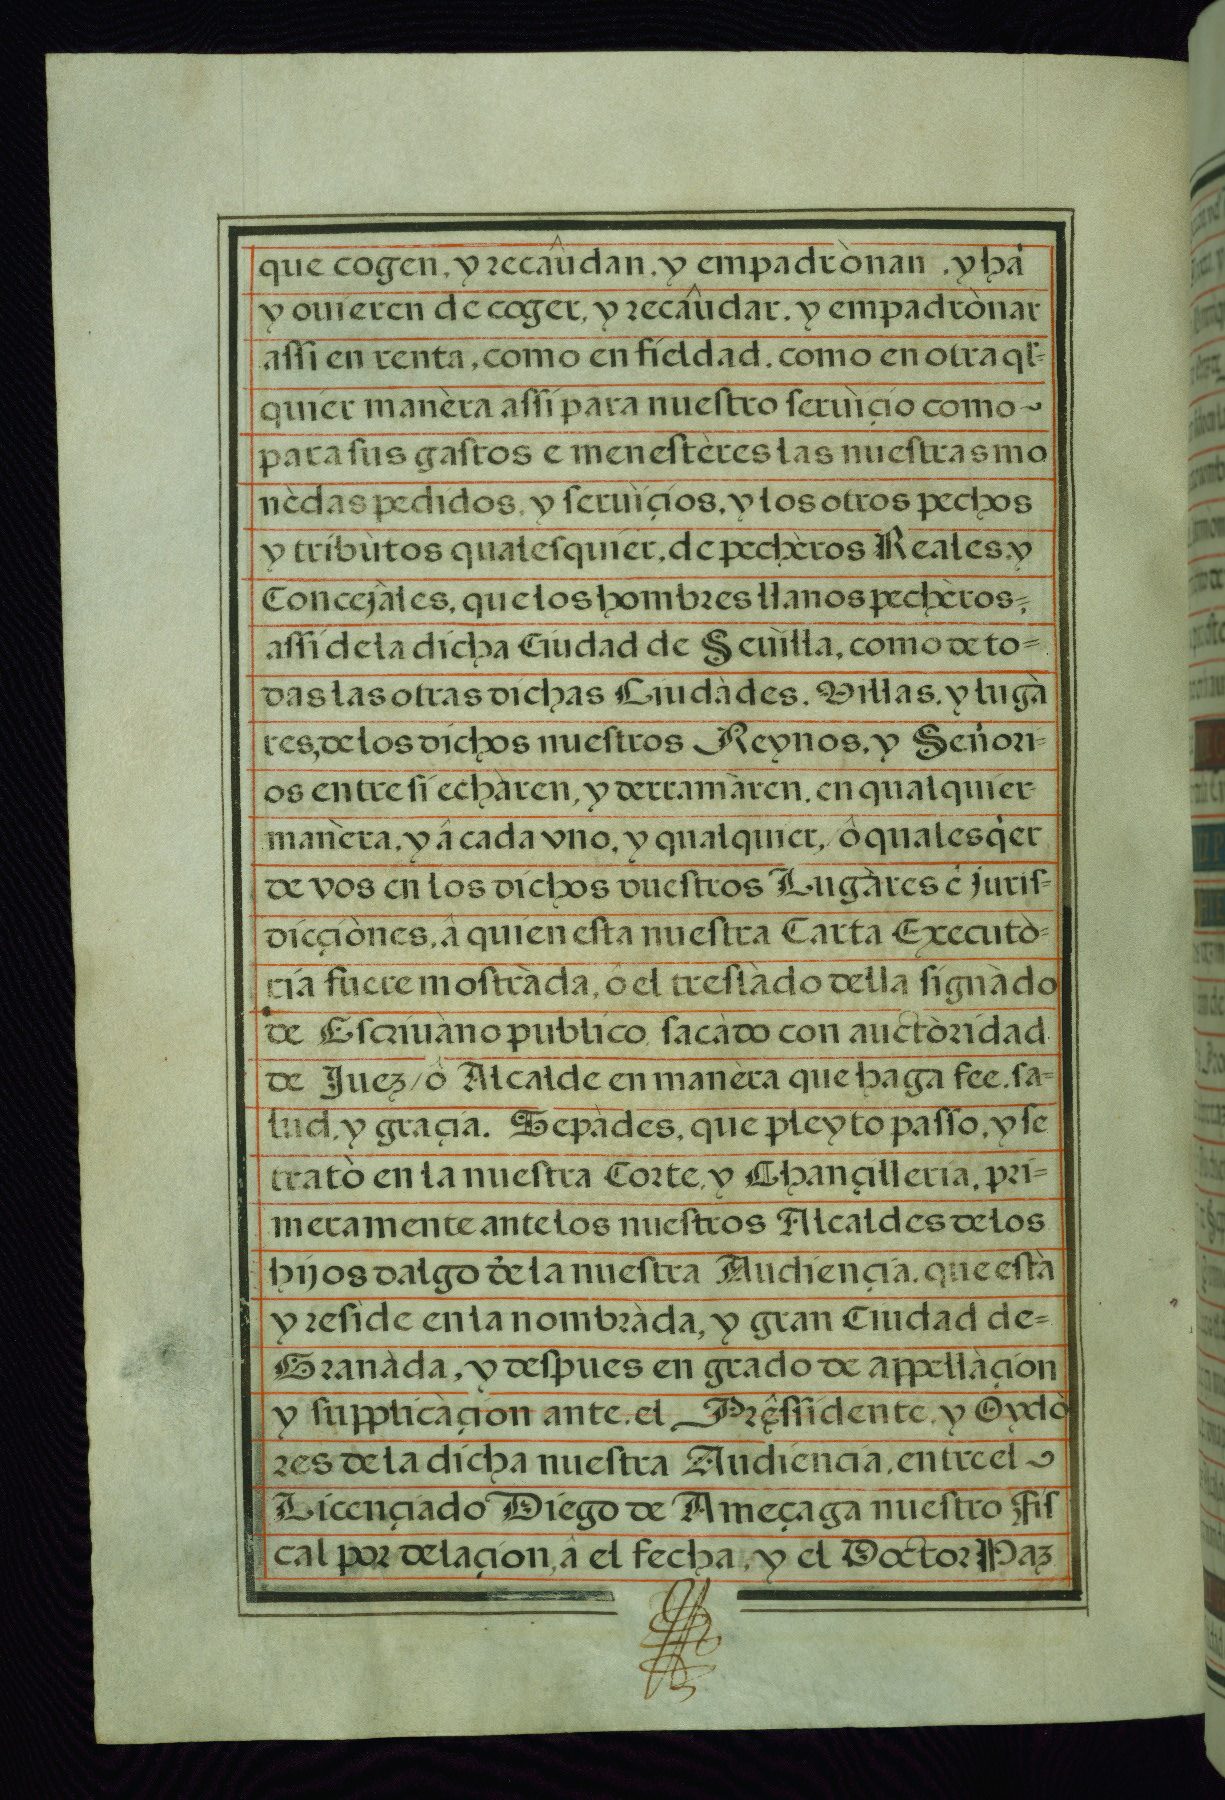 que cogen, y recaûdan, y empadrònan, y hā
y ouieren de coger, y recaûdar, y empadrònar
assi en renta, como en fieldad, como en otra ql-
quier manèra assi para nuestro seruìçio como
para sus gastos e menestères las nuestras mo
nèdas pedidos, y seruìçios, y los otros pechos
y tribùtos qualesquier, de pechèros Reales, y
Concejàles, que los hombres llanos pechèros,
assi de la dicha Ciudad de Seuìlla, como de to=
das las otras dichas Ciudàdes, Villas, y lugà
res, de los dichos nuestros Reynos, y Señori=
os entre si echàren, y derramàren, en qualquier
manèra, y â cada vno, y qualquier, ô qualesq̇er
de vos en los dichos vuestros Lugàres ê juris=
dicçiònes, â quien esta nuestra Carta Executò=
ria fuere mostràda, ô el treslàdo della signàdo
de Escriuàno publico sacàdo con auctòridad
de Juez / ô Alcalde en manèra que haga fee, sa=
lud, y graçia. Sepàdes, que pleyto passo, y se
tratò en la nuestra Corte, y Chançilleria, pri=
meramente ante los nuestros Alcaldes de los
hijos dalgo de la nuestra Audiençia, que està
y reside en la nombràda, y gran Ciudad de=
Granàda, y despues en grado de appellàçion
y supplicàçion ante el Pręssidente, y Oydò
res de la dicha nuestra Audiencia, entre el
Licençiado Diego de Ameçaga nuestro Fis
cal por delaçion, â el fecha, y el Doctor Paz